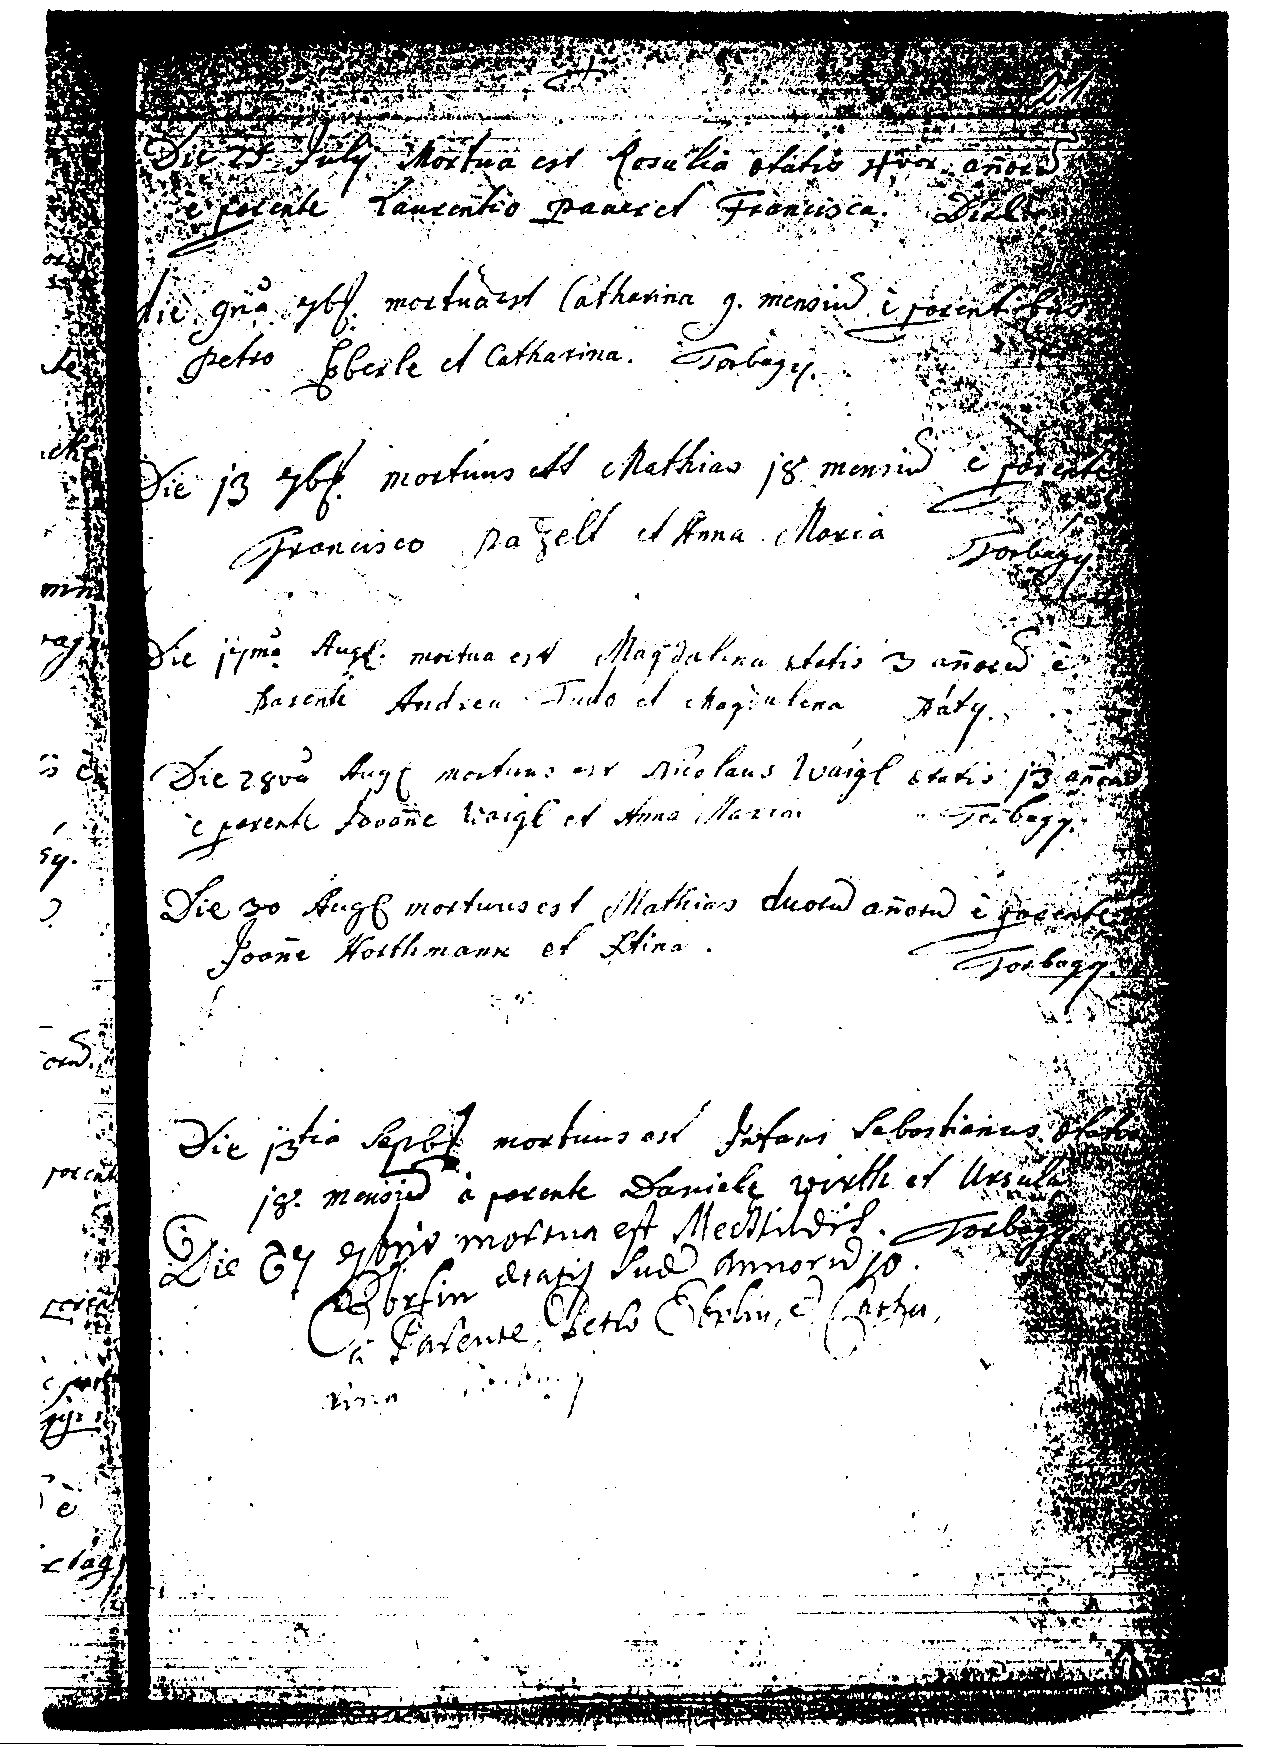 Die 28 July Mortua est Rosalia etatis 4tuor añorũ
è parente Laurentio Pauer et Francisca.
die 9nã 7bȓ. mortua est Catharina 9. mensiũ è parentibus
Petro Eberle et Catharina. Torbagy.
Die 13 7bȓ. mortuus est Mathias 18 mensiũ è parente
Francisco Pazelt et Anna Maria Torbagy.
Die Aug. mortua est Magdalena etatis 3 añorũ è
Parente Andrea Tudo et Magdalena Páty.
Die 28vã Aug mortuus est Nicolaus Waigl etatis 13 añorũ
è parente Jooñe Waigl et Anna Maria Torbagy.
Die 30 Aug mortuus est Mathias duorũ añorũ è parente
Joañe Horthmann et Xtina. Torbagy.
Die 13tia Sepbr mortuus est Infans Sebastianus etatis
18. mensiũ à parente Daniele Wirth et Ursula
Torbagy
Die 7bris mortua est Mechtildis.
Eberlin etatis suæ Annorũ 10.
à Parente Petro Eberlin, et Catha,
rina